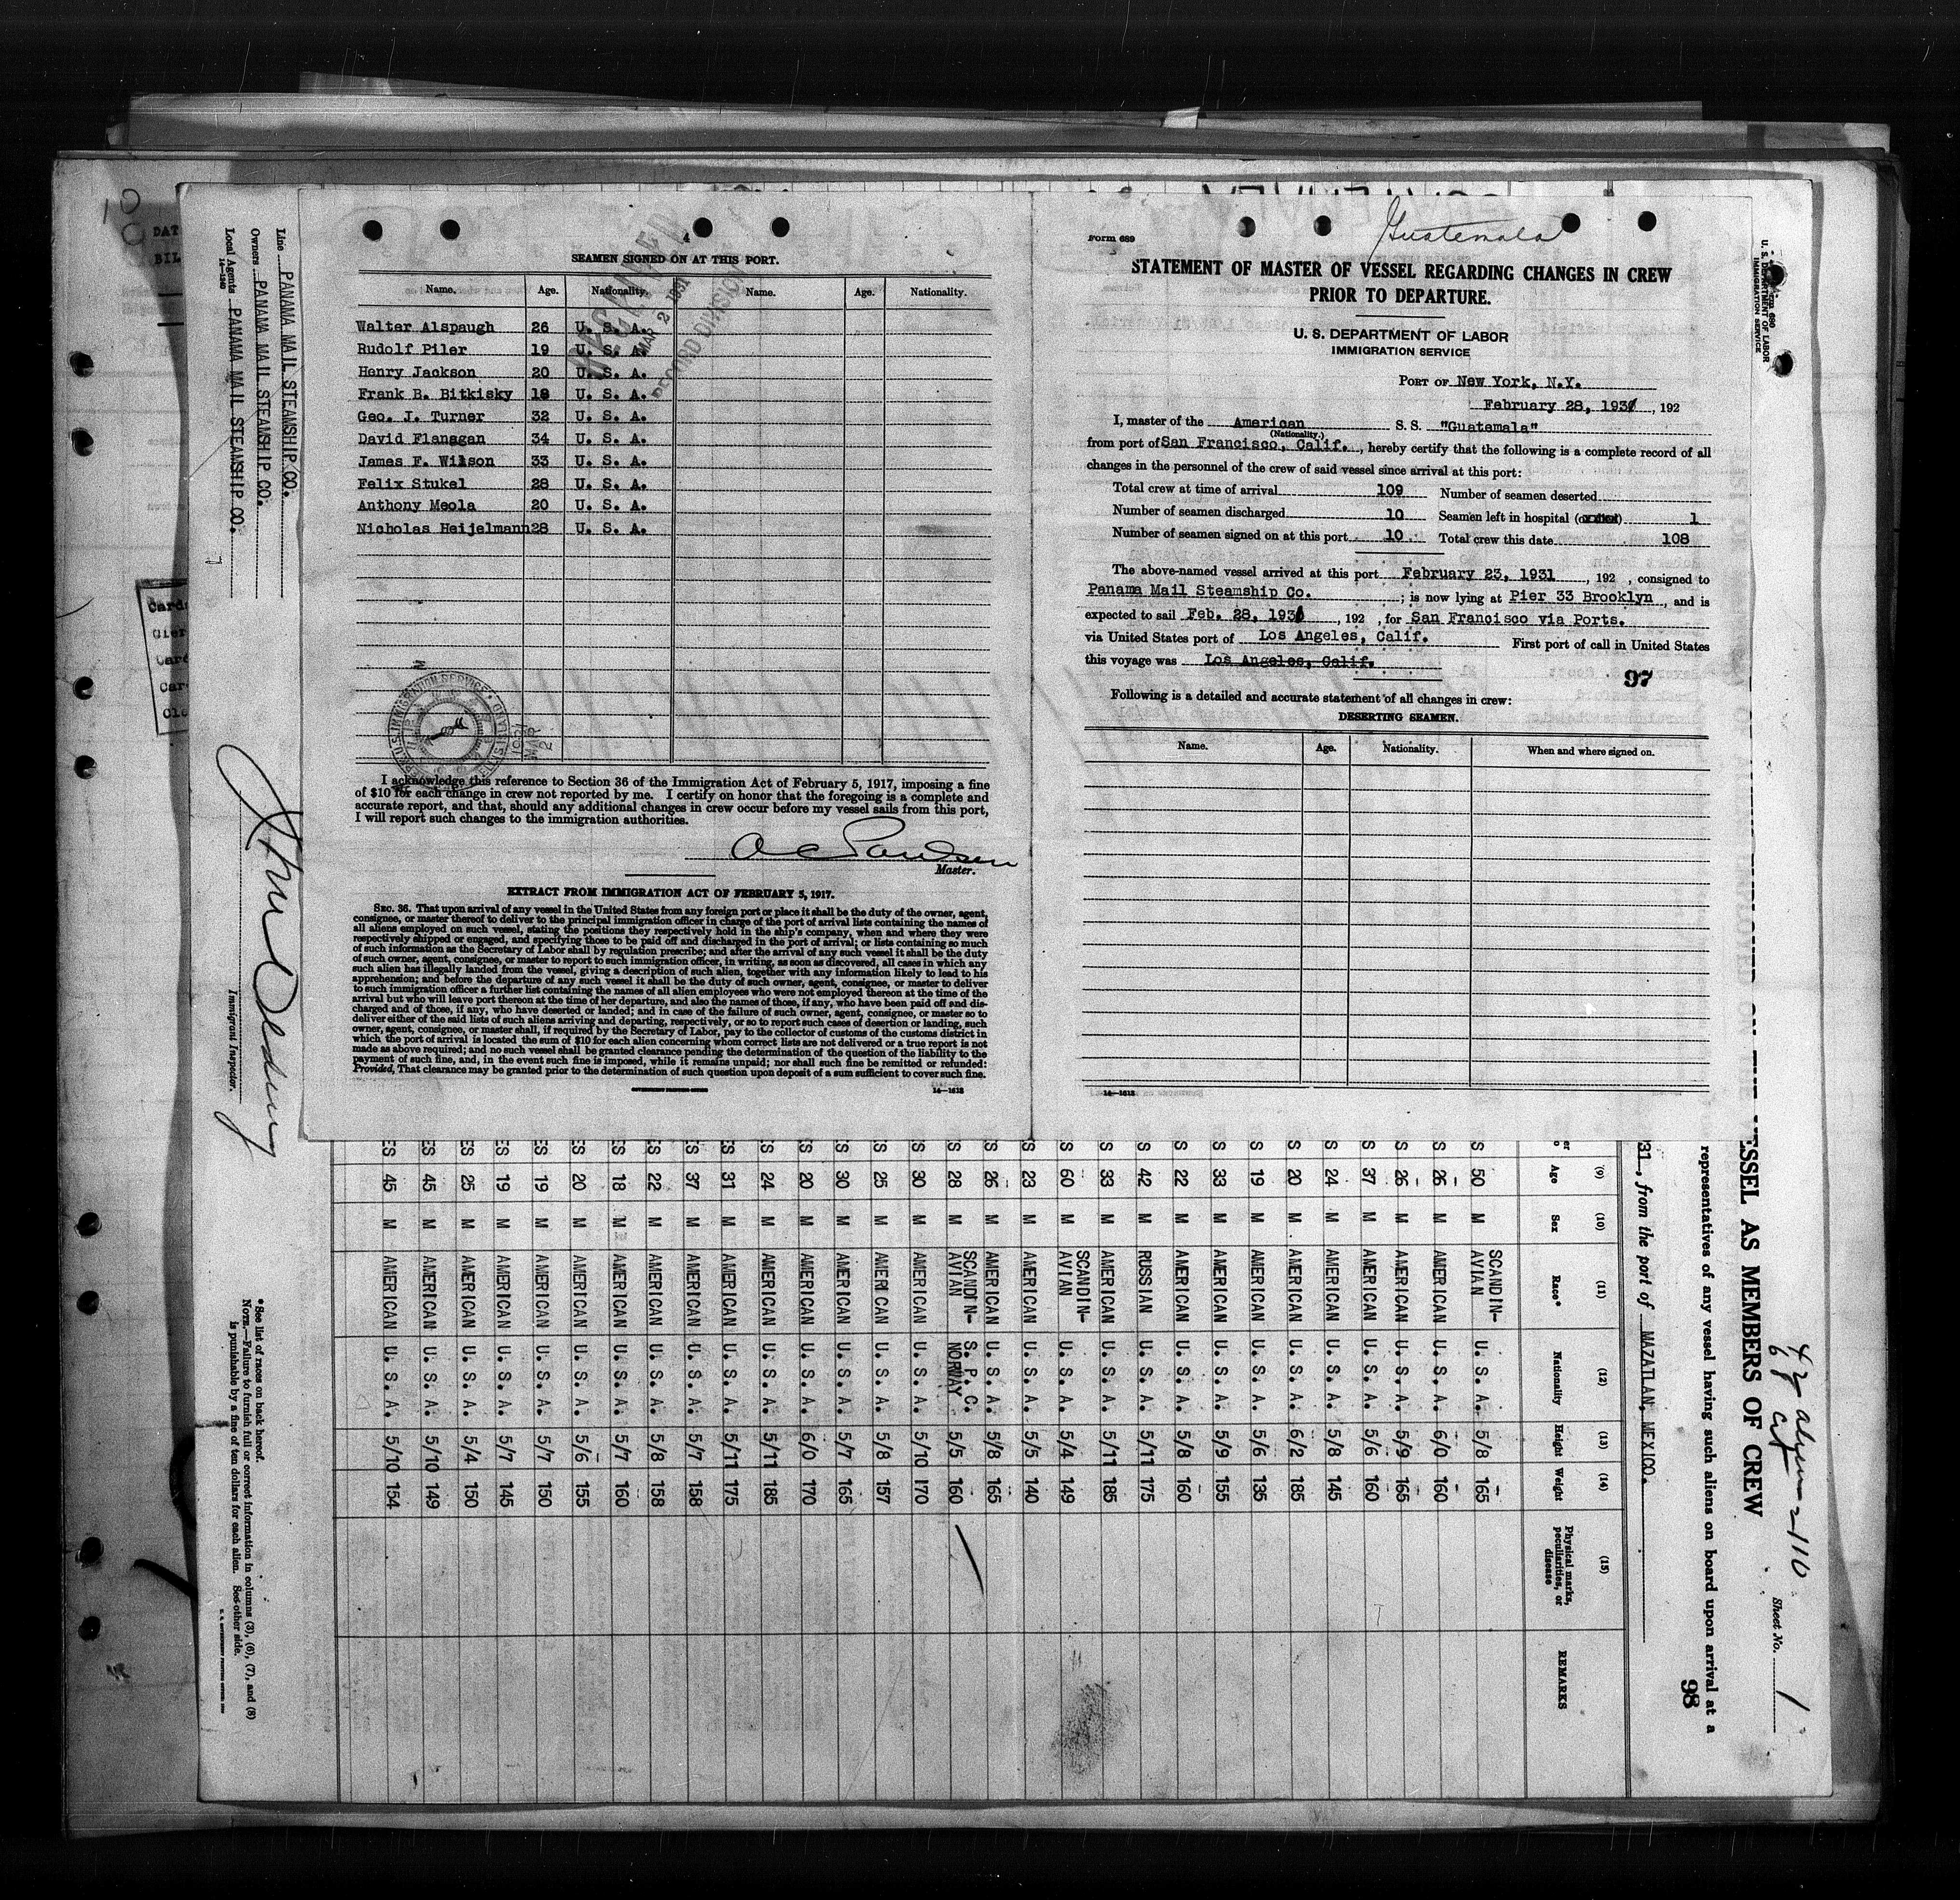 4
SEAMEN SIGNED ON AT THIS PORT.
Name. Age. Nationality. Name. Age. Nationality.
Walter Alspaugh 26 U. S. A.
Rudolf Piler 19 U. S. A.
Henry Jackson 20 U. S. A.
Frank B. Bitkisky 19 U. S. A.
Geo. J. Turner 32 U. S. A.
David Flanagan 34 U. S. A.
James F. Wilson 33 U. S. A.
Felix Stukel 28 U. S. A.
Anthony Meola 20 U. S. A.
Nicholas Heijelmann 28 U. S. A.
MAR 2 1931
RECORD DIVISION
I acknowledge this reference to Section 36 of the Immigration Act of February 5, 1917, imposing a fine
of $10 for each change in crew not reported by me. I certify on honor that the foregoing is a complete and
accurate report, and that, should any additional changes in crew occur before my vessel sails from this port,
I will report such changes to the immigration authorities.
Master.
EXTRACT FROM IMMIGRATION ACT OF FEBRUARY 5, 1917.
SEC. 36. That upon arrival of any vessel in the United States from any foreign port or place it shall be the duty of the owner, agent,
consignee, or master thereof to deliver to the principal immigration officer in charge of the port of arrival lists containing the names of
all aliens employed on such vessel, stating the positions they respectively hold in the ship's company, when and where they were
respectively shipped or engaged, and specifying those to be paid off and discharged in the port of arrival; or lists containing so much
of such information as the Secretary of Labor shall by regulation prescribe; and after the arrival of any such vessel it shall be the duty
of such owner, agent, consignee, or master to report to such immigration officer, in writing, as soon as discovered, all cases in which any
such alien has illegally landed from the vessel, giving a description of such alien, together with any information likely to lead to his
apprehension; and before the departure of any such vessel it shall be the duty of such owner, agent, consignee, or master to deliver
to such immigration officer a further list containing the names of all alien employees who were not employed thereon at the time of the
arrival but who will leave port thereon at the time of her departure, and also the names of those, if any, who have been paid off and dis-
charged and of those, if any, who have deserted or landed; and in case of the failure of such owner, agent, consignee, or master so to
deliver either of the said lists of such aliens arriving and departing, respectively, or so to report such cases of desertion or landing, such
owner, agent, consignee, or master shall, if required by the Secretary of Labor, pay to the collector of customs of the customs district in
which the port of arrival is located the sum of $10 for each alien concerning whom correct lists are not delivered or a true report is not
made as above required; and no such vessel shall be granted clearance pending the determination of the question of the liability to the
payment of such fine, and, in the event such fine is imposed, while it remains unpaid; nor shall such fine be remitted or refunded:
Provided, That clearance may be granted prior to the determination of such question upon deposit of a sum sufficient to cover such fine.
14—1613
Guatemala
Form 689
STATEMENT OF MASTER OF VESSEL REGARDING CHANGES IN CREW
PRIOR TO DEPARTURE.
U. S. DEPARTMENT OF LABOR
IMMIGRATION SERVICE
PORT OF New York, N.Y.
February 28, 1931, 192
I, master of the American S. S. "Guatemala"
(Nationality.)
from port of San Francisco, Calif., hereby certify that the following is a complete record of all
changes in the personnel of the crew of said vessel since arrival at this port:
Total crew at time of arrival 109 Number of seamen deserted
Number of seamen discharged 10 Seamen left in hospital 1
Number of seamen signed on at this port 10 Total crew this date 108
The above-named vessel arrived at this port February 23, 1931, 192 , consigned to
Panama Mail Steamship Co. ; is now lying at Pier 33 Brooklyn, and is
expected to sail Feb. 28, 1931, 192 , for San Francisco via Ports.
via United States port of Los Angeles, Calif. First port of call in United States
this voyage was Los Angeles, Calif.
97
Following is a detailed and accurate statement of all changes in crew:
DESERTING SEAMEN.
Name. Age. Nationality. When and where signed on.
14—1613
Line PANAMA MAIL STEAMSHIP CO.
Owners PANAMA MAIL STEAMSHIP CO.
Local Agents PANAMA MAIL STEAMSHIP CO.
Immigrant Inspector.
Sheet No. 1
ESSEL AS MEMBERS OF CREW
representatives of any vessel having such aliens on board upon arrival at a
98
31, from the port of MAZATLAN, MEXICO.
(9) (10) (11) (12) (13) (14) (15)
Age Sex Race* Nationality Height Weight Physical marks, peculiarities, or disease REMARKS
S 50 M SCANDIN-AVIAN U. S. A. 5/8 165
S 26 M AMERICAN U. S. A. 6/0 160
S 26 M AMERICAN U. S. A. 5/9 165
S 37 M AMERICAN U. S. A. 5/6 160
S 24 M AMERICAN U. S. A. 5/8 145
S 20 M AMERICAN U. S. A. 6/2 185
S 19 M AMERICAN U. S. A. 5/6 135
S 33 M AMERICAN U. S. A. 5/9 155
S 22 M AMERICAN U. S. A. 5/8 160
S 42 M RUSSIAN U. S. A. 5/11 175
S 33 M AMERICAN U. S. A. 5/11 185
S 60 M SCANDIN-AVIAN U. S. A. 5/4 149
S 23 M AMERICAN U. S. A. 5/5 140
S 26 M AMERICAN U. S. A. 5/8 165
S 28 M SCANDIN-AVIAN S. P. C. NORWAY 5/5 160
S 30 M AMERICAN U. S. A. 5/10 170
S 25 M AMERICAN U. S. A. 5/8 157
ES 30 M AMERICAN U. S. A. 5/7 165
ES 20 M AMERICAN U. S. A. 6/0 170
ES 24 M AMERICAN U. S. A. 5/11 185
ES 31 M AMERICAN U. S. A. 5/11 175
ES 37 M AMERICAN U. S. A. 5/7 158
ES 22 M AMERICAN U. S. A. 5/8 158
ES 18 M AMERICAN U. S. A. 5/7 160
ES 20 M AMERICAN U. S. A. 5/6 155
ES 19 M AMERICAN U. S. A. 5/7 150
ES 19 M AMERICAN U. S. A. 5/7 145
ES 25 M AMERICAN U. S. A. 5/4 150
ES 45 M AMERICAN U. S. A. 5/10 149
ES 45 M AMERICAN U. S. A. 5/10 154
*See list of races on back hereof.
NOTE.—Failure to furnish full or correct information in columns (3), (6), (7), and (8)
is punishable by a fine of ten dollars for each alien. See other side.